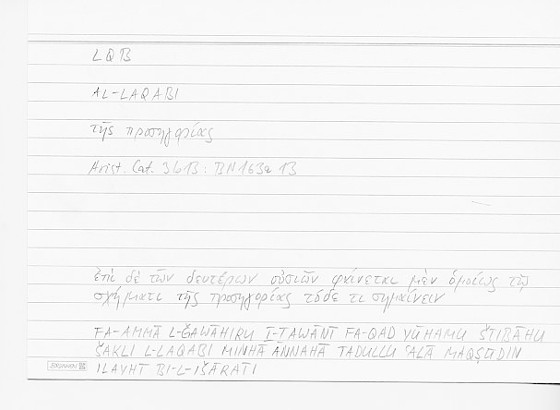 LQB
AL-LAQABI
τῆς προσηγορίας
Arist. Cat. 3b13: BN 163a 13
ἐπὶ δὲ τῶν δευτέρων οὐσιῶν φαίνεται μὲν ὁμοίως τῷ
σχήματι τῆς προσηγορίας τόδε τι σημαίνειν
FA-AMMĀ L-ǦAWĀHIRU Ṯ-ṮAWĀNĪ FA-QAD YŪHAMU ŠTIBĀHU
ŠAKLI L-LAQABI MINHĀ ANNAHĀ TADULLU ʿALĀ MAQṢŪDIN
ILAYHI BI-L-IŠĀRATI